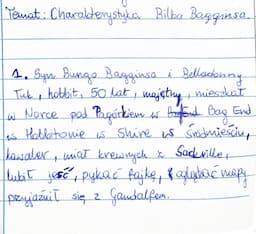 Temat: Charakterystyka Bilba Bagginsa.
1. Syn Bungo Bagginsa i Belladonny
Tuk, hobbit, 50 lat, majętny, mieszkał
w Norce pod Pagórkiem w Bag End
w Hobbitonie w Shire w Śródziemiu,
kawaler, miał krewnych z Sackville,
lubił jeść, pykać fajkę, oglądać mapy
przyjaźnił się z Gandalfem.